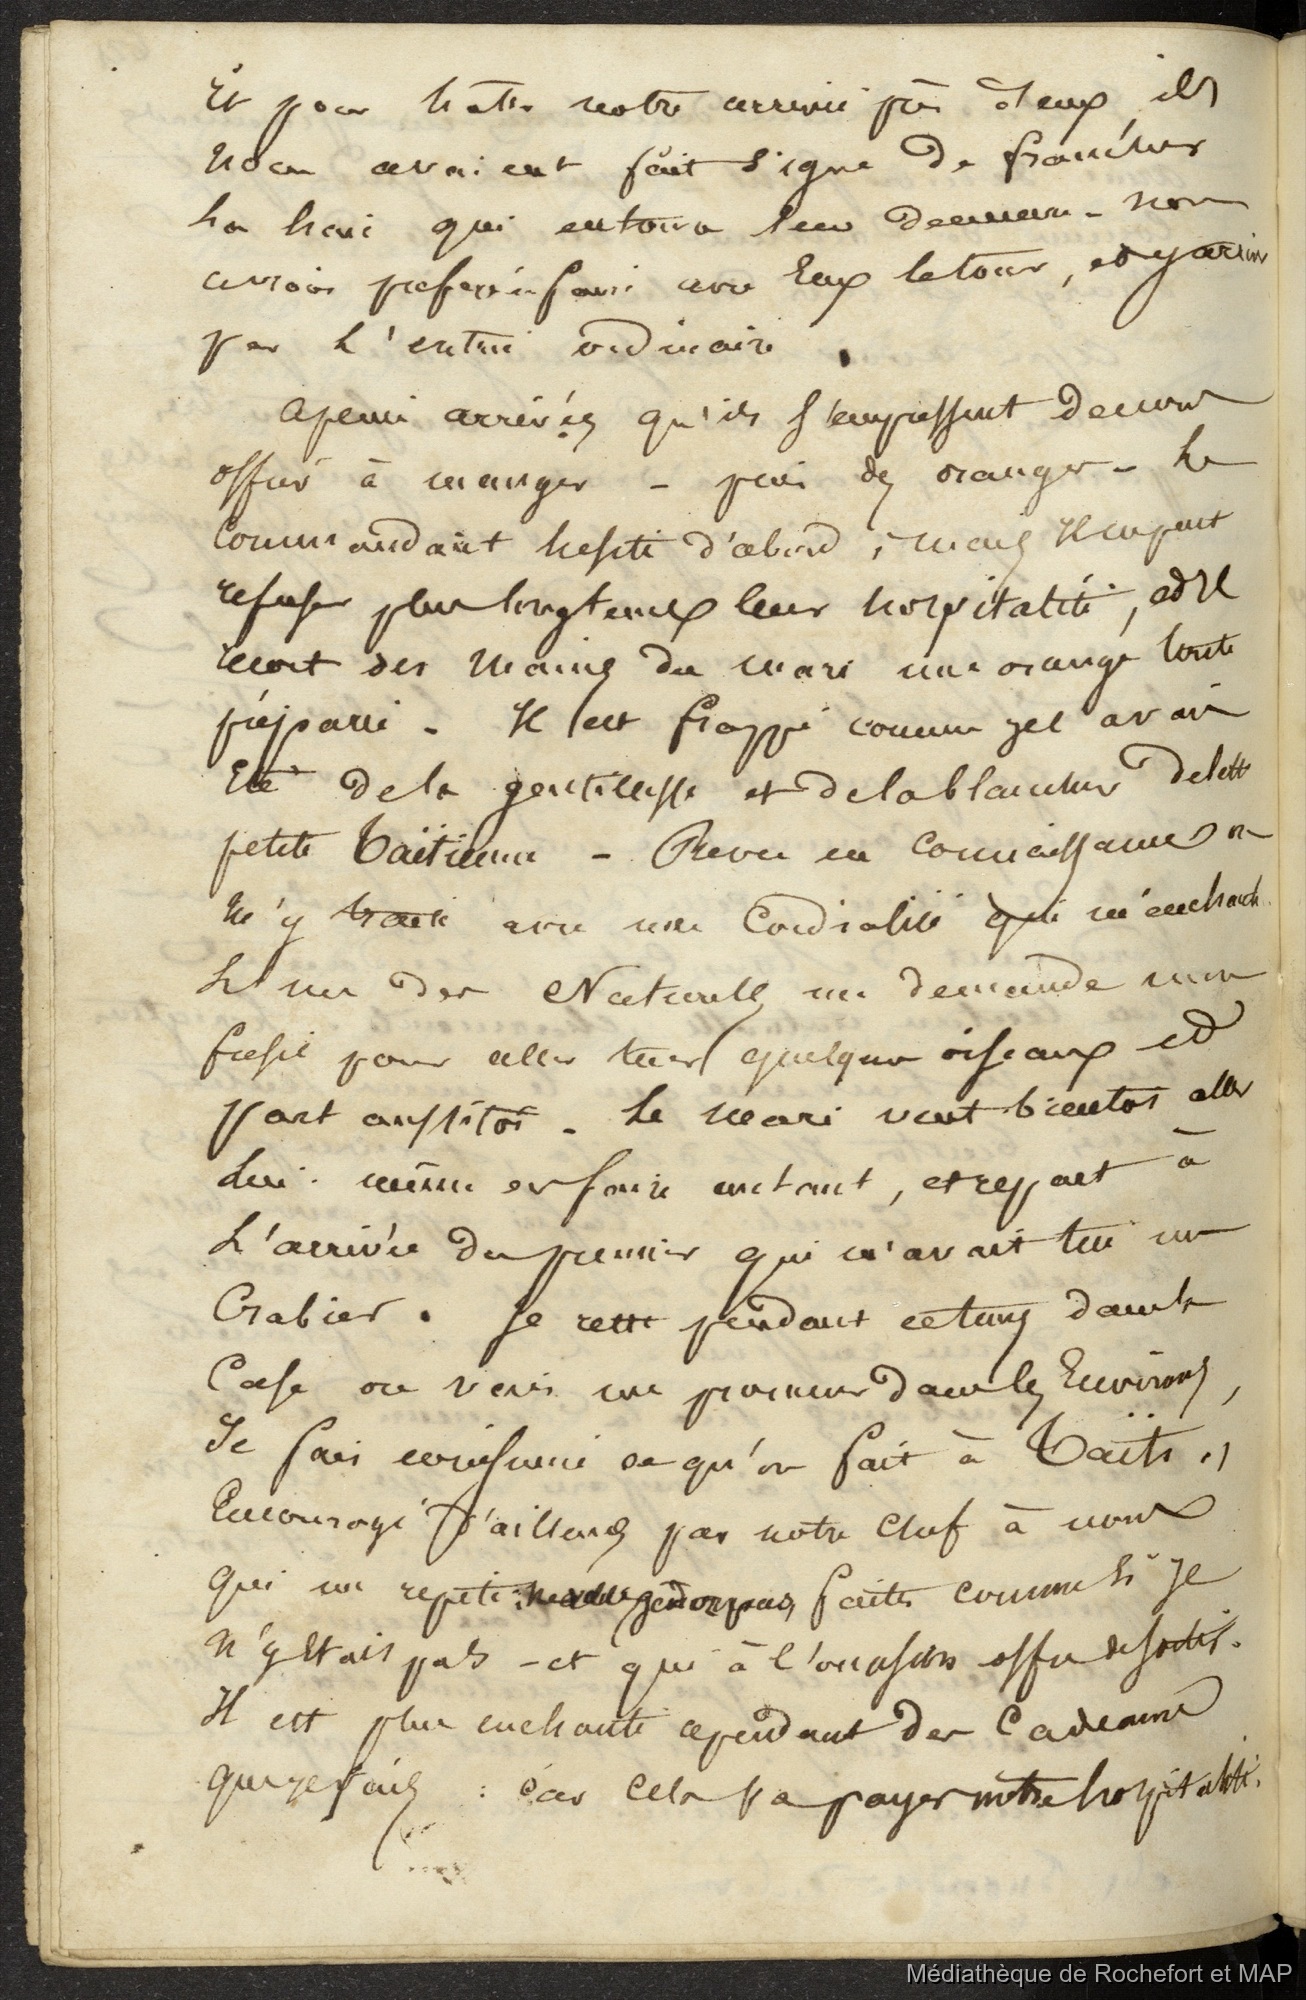 Et pour hater notre arrivée près d'eux, ils
nous avaient fait signe de franchir
la haie qui entoure leur demeure - nous
avions preferé faire avec Eux le tour, et y arriver
par L'entrée ordinaire.
Apeine arrivés qu'ils s'empressent de nous
offrir à manger - puis des oranges - Le
Commandant hesite d'abord, mais Il ne peut
refuser plus longtemps leur hospitalité, et Il
recoit des Mains du mari une orange toute
préparée - Il est frappé comme je l'avais
Eté de la gentillesse et de la blancheur de cette
petite Taïtienne - Revu en Connaissance on
m'y traite avec une Cordialité qui m'enchante.
L'un des Naturels me demande mon
fusil pour aller tuer quelques oiseaux et
part aussitôt - Le Mari veut bientot aller
Lui-même en faire autant, et repart à
L'arrivée du premier qui m'avait tué un
Crabier. Je reste pendant ce tems dans la
Case ou vais me promener dans les Environs,
Je fais ce qu'on fait à Taïti,
Encouragé d'ailleurs par notre Chef à nous
qui me repete: faites comme si Je
n'y Etais pas - et qui à l'occasion offre de sortir.
Il est plus enchanté cependant des Cadeaux
que je fais : car Cela va payer notre hospitalité.
Médiathèque de Rochefort et MAP